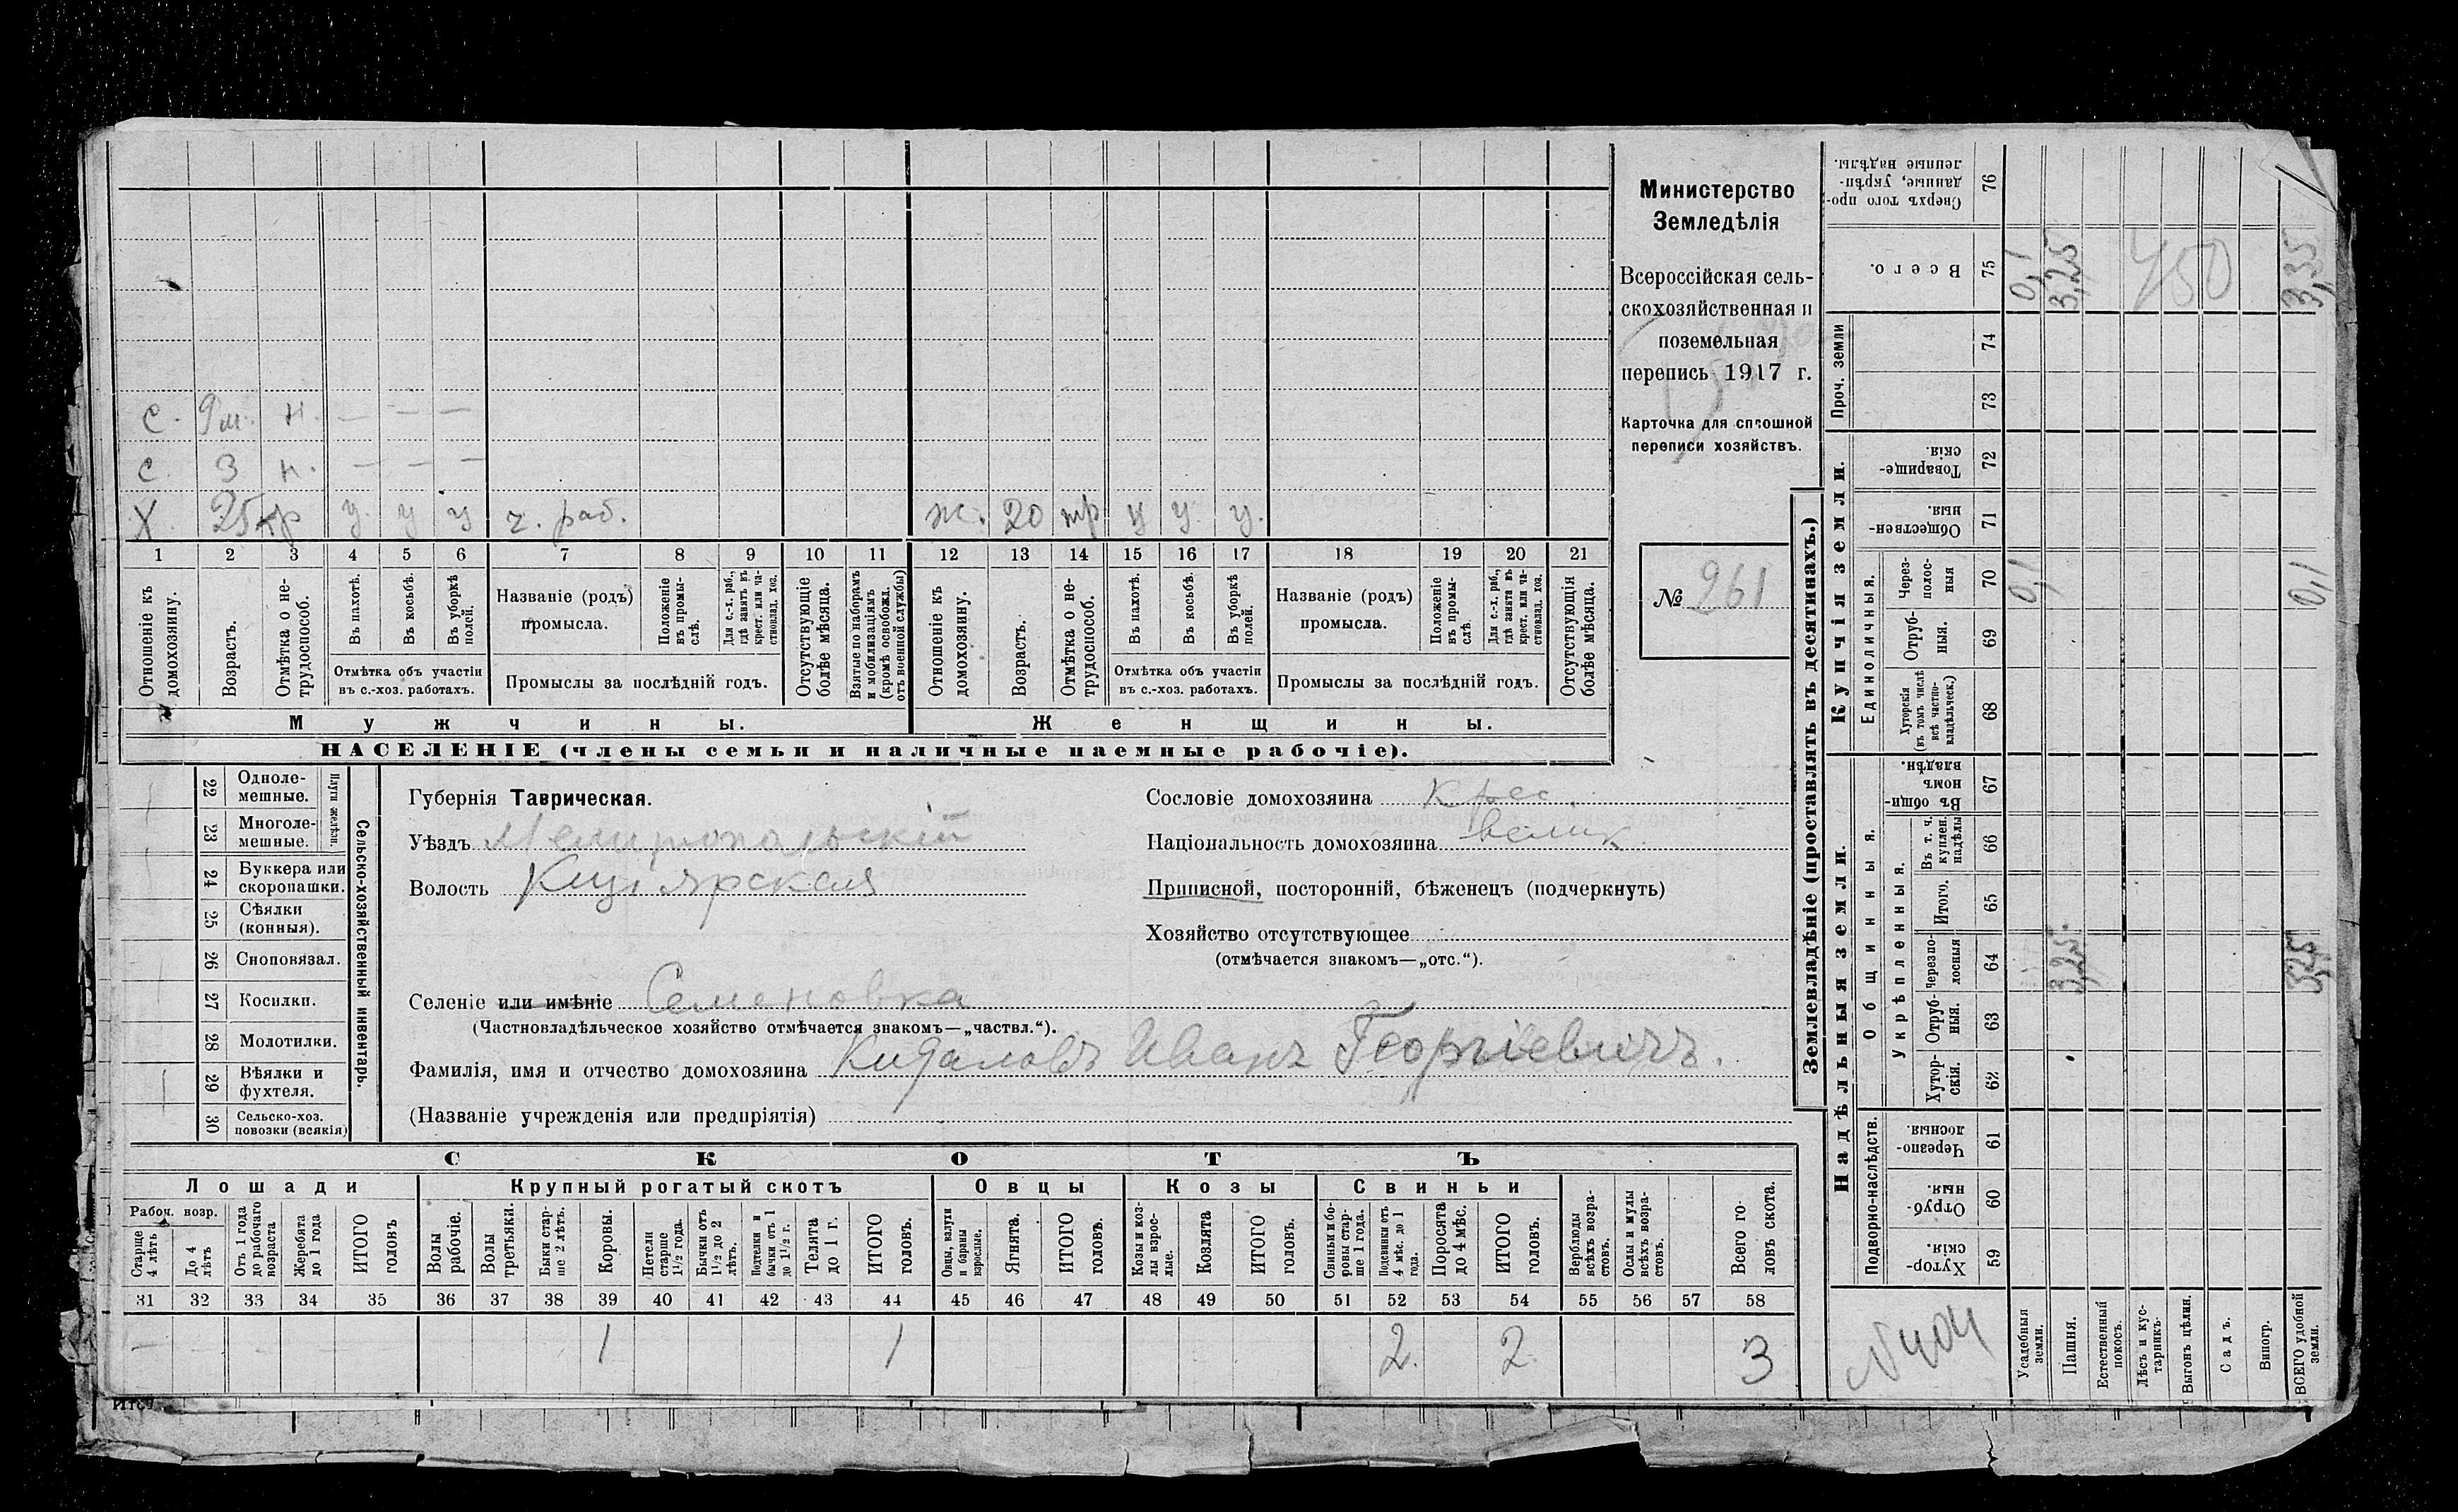 Министерство
Земледѣлія
Всероссійская сель-
скохозяйственная и
поземельная
перепись 1917 г.
Карточка для сплошной
переписи хозяйствъ.
№ 261
с. 9 м. н. — — —
с. 3 н. — — —
Х 25 тр у у у ч. раб. ж. 20 тр у у у.
1 2 3 4 5 6 7 8 9 10 11 12 13 14 15 16 17 18 19 20 21
Отношеніе къ домохозяину.
Возрастъ.
Отмѣтка о не-трудоспособ.
Въ пахотѣ.
Въ косьбѣ.
Въ уборкѣ полей.
Отмѣтка объ участіи
въ с.-хоз. работахъ.
Названіе (родъ)
промысла.
Положеніе въ промы-слѣ.
Для с.-х. раб., гдѣ занятъ въ крест. или ча-стновлад. хоз.
Промыслы за послѣдній годъ.
Отсутствующіе болѣе мѣсяца.
Взятые по наборамъ и мобилизаціямъ (кромѣ освобожд. отъ военной службы)
Отношеніе къ домохозяину.
Возрастъ.
Отмѣтка о не-трудоспособ.
Въ пахотѣ.
Въ косьбѣ.
Въ уборкѣ полей.
Отмѣтка объ участіи
въ с.-хоз. работахъ.
Названіе (родъ)
промысла.
Положеніе въ промы-слѣ
Для с.-х. раб., гдѣ занята въ крест. или ча-стновлад. хоз.
Промыслы за послѣдній годъ.
Отсутствующія болѣе мѣсяца.
Мужчины. Женщины.
НАСЕЛЕНІЕ (члены семьи и наличные наемные рабочіе).
Сельско-хозяйственный инвентарь.
Плуги желѣзн.
22 Одноле-мешные.
23 Многоле-мешные.
24 Буккера или скоропашки.
25 Сѣялки (конныя).
26 Сноповязал.
27 Косилки.
28 Молотилки.
29 Вѣялки и фухтеля.
30 Сельско-хоз. повозки (всякія)
Губернія Таврическая.
Уѣздъ Мелитопольскій
Волость
Селеніе или имѣніе Семеновка
(Частновладѣльческое хозяйство отмѣчается знакомъ—„частвл.“).
Фамилія, имя и отчество домохозяина Кидаловъ Иванъ Георгіевичъ.
(Названіе учрежденія или предпріятія)
Сословіе домохозяина крес.
Національность домохозяина велик.
Приписной, посторонній, бѣженецъ (подчеркнуть)
Хозяйство отсутствующее
(отмѣчается знакомъ—„отс.“).
СКОТЪ
Лошади Крупный рогатый скотъ Овцы Козы Свиньи
Рабоч. возр.
Старше 4 лѣтъ
До 4 лѣтъ
Отъ 1 года до рабочаго возраста
Жеребята до 1 года
ИТОГО головъ
Волы рабочіе.
Волы третьяки.
Быки стар-ше 2 лѣтъ.
Коровы.
Нетели старше 1 1/2 года.
Бычки отъ 1 1/2 до 2 лѣтъ.
Подтелки и бычки отъ 1 до 1 1/2 г.
Телята до 1 г.
ИТОГО головъ.
Овцы, валухи и бараны взрослые.
Ягнята.
ИТОГО головъ.
Козы и коз-лы взрос-лые.
Козлята
ИТОГО головъ.
Свиньи и бо-ровы стар-ше 1 года.
Подсвинки отъ 4 мѣс. до 1 года.
Поросята до 4 мѣс.
ИТОГО головъ.
Верблюды всѣхъ возра-стовъ.
Ослы и мулы всѣхъ возра-стовъ.
Всего го-ловъ скота.
31 32 33 34 35 36 37 38 39 40 41 42 43 44 45 46 47 48 49 50 51 52 53 54 55 56 57 58
— — — — — 1 1 2. 2 3
Землевладѣніе (проставлять въ десятинахъ.)
Надѣльныя земли. Купчія земли. Проч. земли
Подворно-наслѣдств. Общинныя. Единоличныя.
Укрѣпленныя.
59 Хутор-скія.
60 Отруб-ныя.
61 Черезпо-лосныя.
62 Хутор-скія.
63 Отруб-ныя.
64 Черезпо-лосныя
65 Итого.
66 Въ т. ч. куплен. надѣлы
67 Въ общи-номъ владѣн.
68 Хуторскія (въ томъ числѣ всѣ частно-владѣльческ.)
69 Отруб-ныя.
70 Через-полос-ныя
71 Обществен-ныя.
72 Товарище-скія.
73
74
75 Всего.
76 Сверхъ того про-данные, укрѣп-ленные надѣлы.
Усадебныя земли. 0,1 0,1
Пашня. 3,25 3,25
Естественный покосъ.
Лѣсъ и кус-тарникъ.
Выгонъ цѣлин.
Садъ.
Виногр.
ВСЕГО удобной земли. 3,25 0,1 3,35
450
N 404